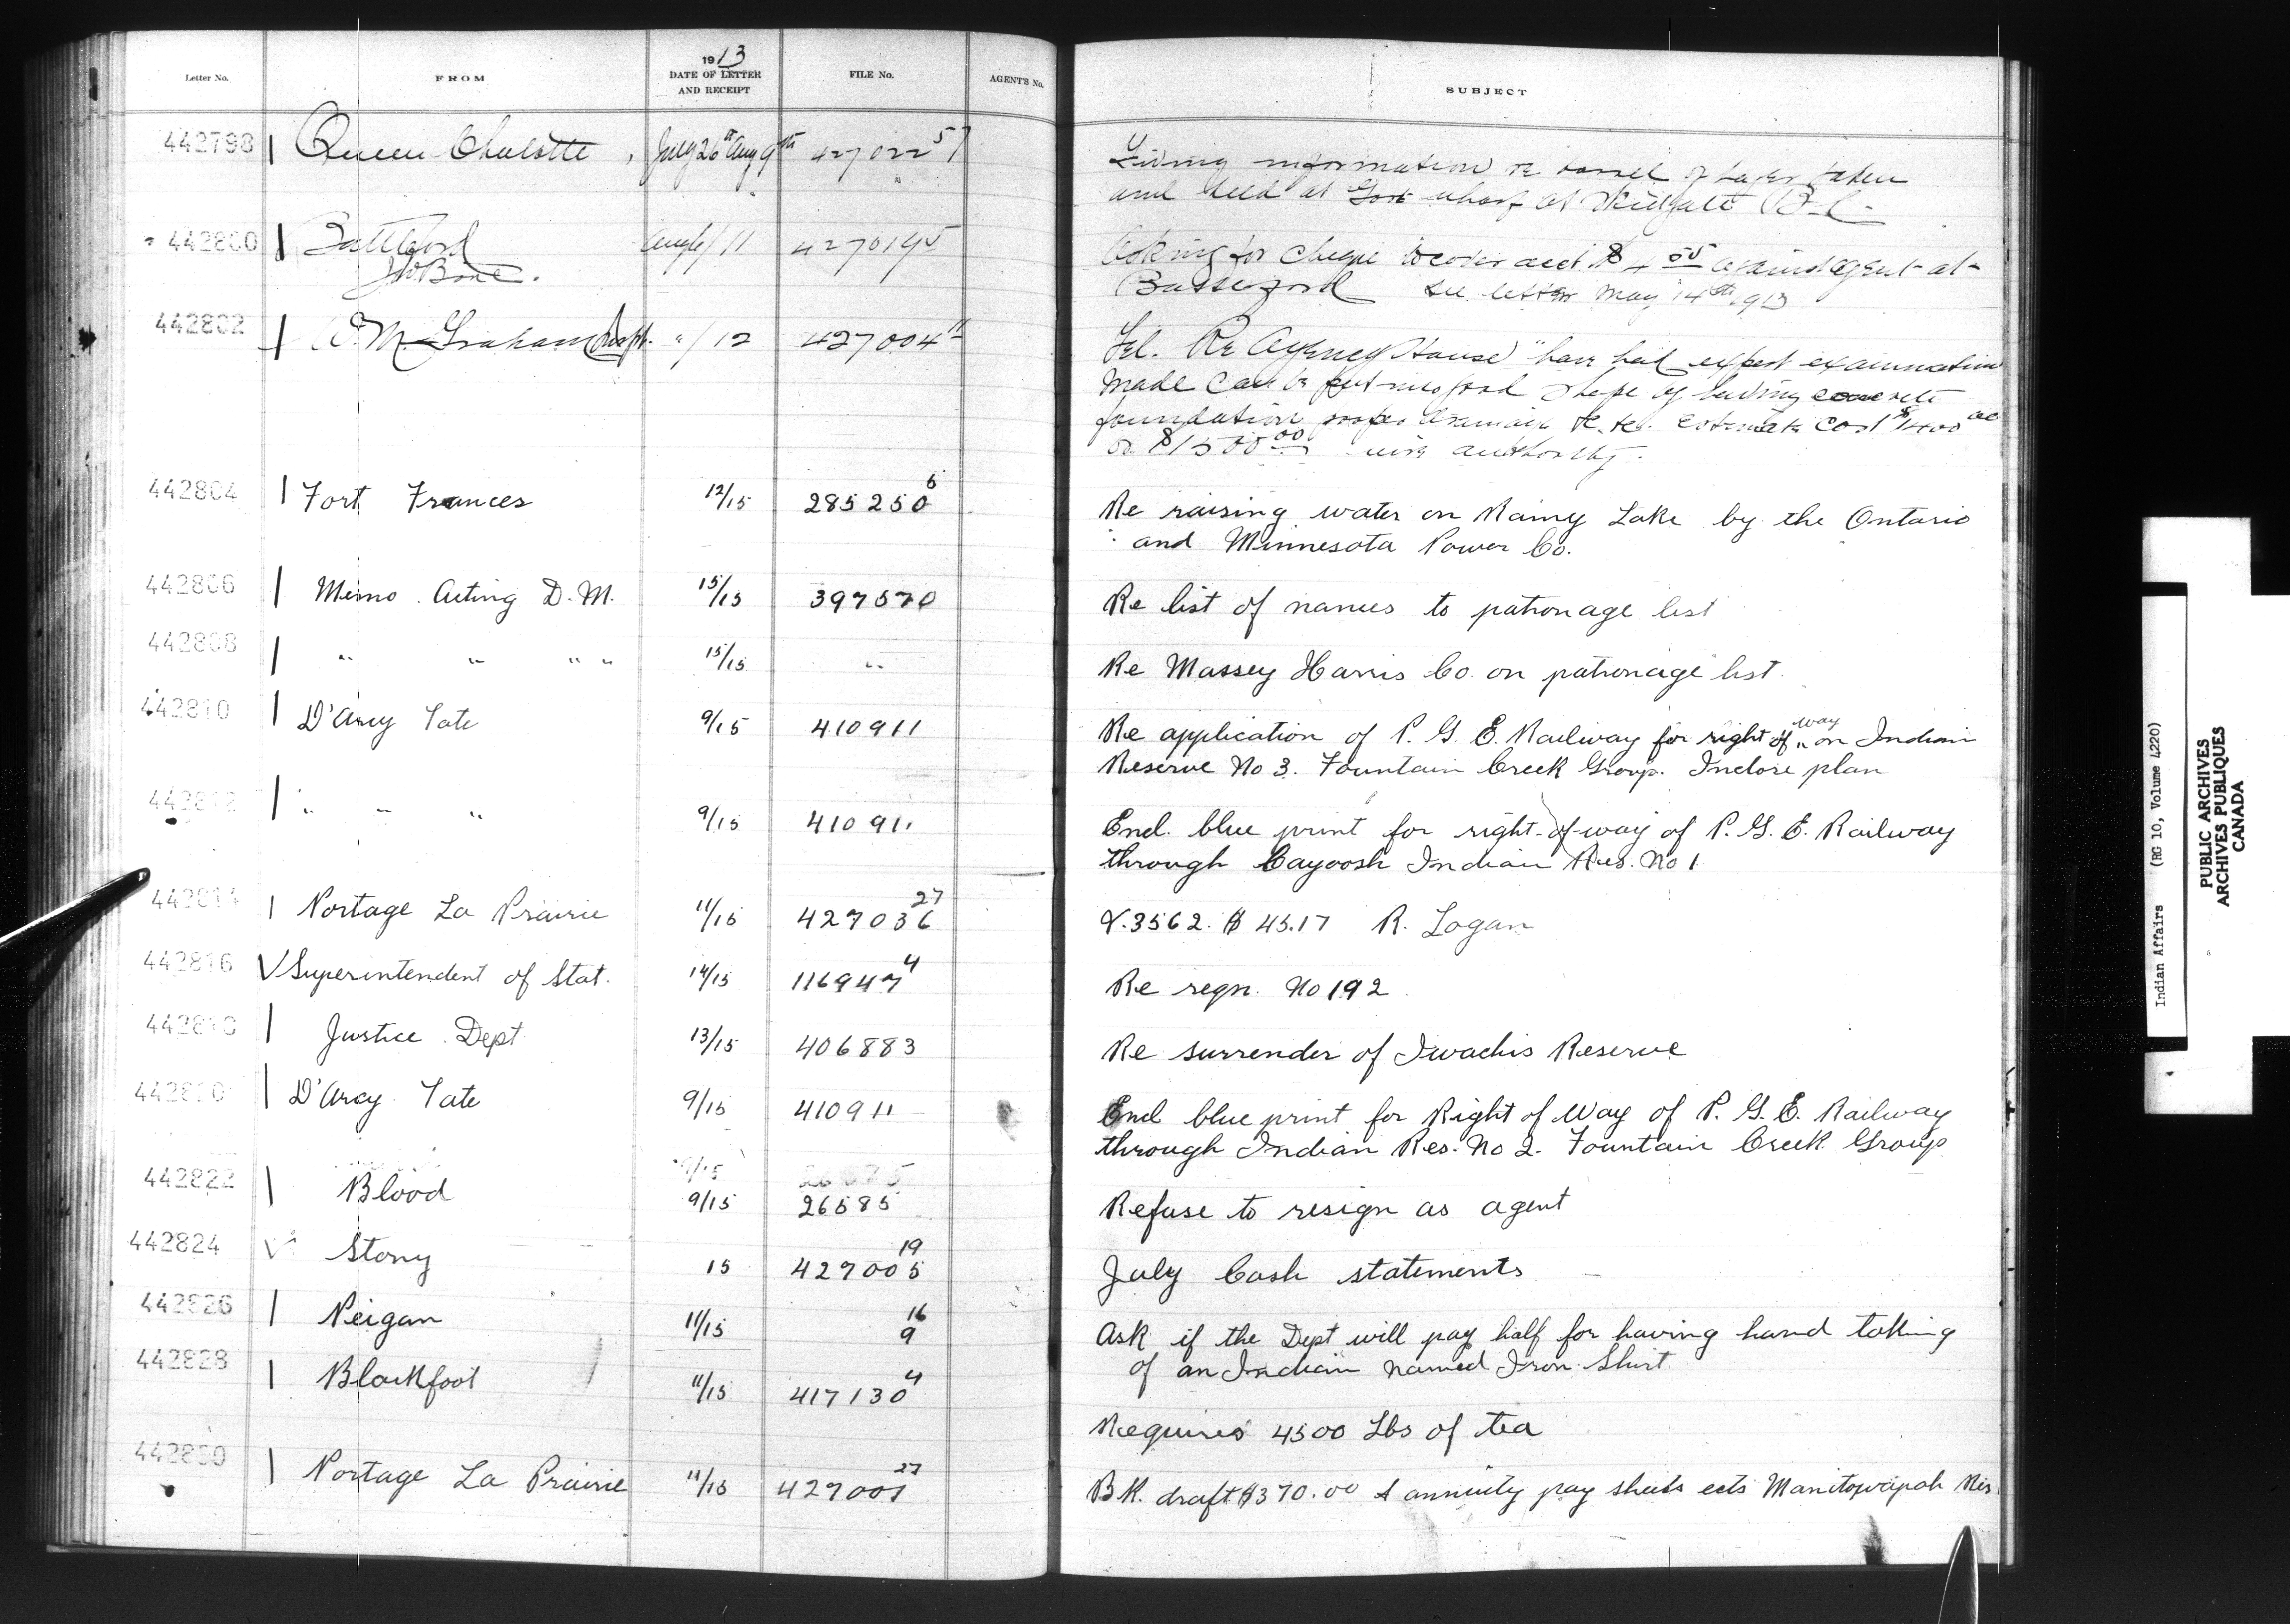 Letter No. FROM 1913 DATE OF LETTER AND RECEIPT FILE No. AGENT'S No. SUBJECT
442798 Queen Chalotte July 26th Aug 9th 427022 57 Giving information re barrel of taken
and held at Govt wharf at Skidgate B.C.
442800 Battleford Aug 6/11 Asking for cheque to cover acct $4.05 against agent at
J W Bone. see letter May 14th 1913
442802 W. M. Graham Insptr. "/12 427004 11 Tel. Re Agency House "have had expert examination
made can be put into good shape by building concrete
foundation proper drainage etc. etc. estimate cost $1400 00
or $1500 00 wire authority.
442804 Fort Frances 12/15 285250 6 Re raising water on Rainy Lake by the Ontario
and Minnesota Power Co.
442806 Memo. Acting D. M. 15/15 397570 Re list of names to patronage list
442808 " " " " 15/15 " Re Massey Harris Co. on patronage list.
442810 D'Arcy Tate 9/15 410911 Re application of P. G. E. Railway for right of way on Indian
Reserve No 3. Fountain Creek Group. Inclose plan
442812 " " " 9/15 410911 Encl. blue print for right-of-way of P. G. E. Railway
through Cayoosh Indian Res. No 1
442814 Portage La Prairie 11/15 427036 27 V.3562. $45.17 R. Logan
442816 Superintendent of Stat. 14/15 116947 4 Re reqn. No 192
442818 Justice Dept 13/15 406883 Re surrender of Iwachis Reserve
442820 D'Arcy Tate 9/15 410911 Encl blue print for Right of Way of P. G. E. Railway
through Indian Res. No 2. Fountain Creek Group
442822 Blood 9/15 26585 Refuse to resign as agent
442824 Stony 15 427005 19 July Cash statements
442826 Peigan 11/15 9 16 Ask if the Dept will pay half for having hand taking
of an Indian named Iron Shirt
442828 Blackfoot 11/15 417130 4 Requires 4500 Lbs of tea
442830 Portage La Prairie 11/15 427001 27 BK. draft $370.00 & annuity pay sheets ects Manitowapah Res
Indian Affairs (RG 10, Volume 4220)
PUBLIC ARCHIVES
ARCHIVES PUBLIQUES
CANADA